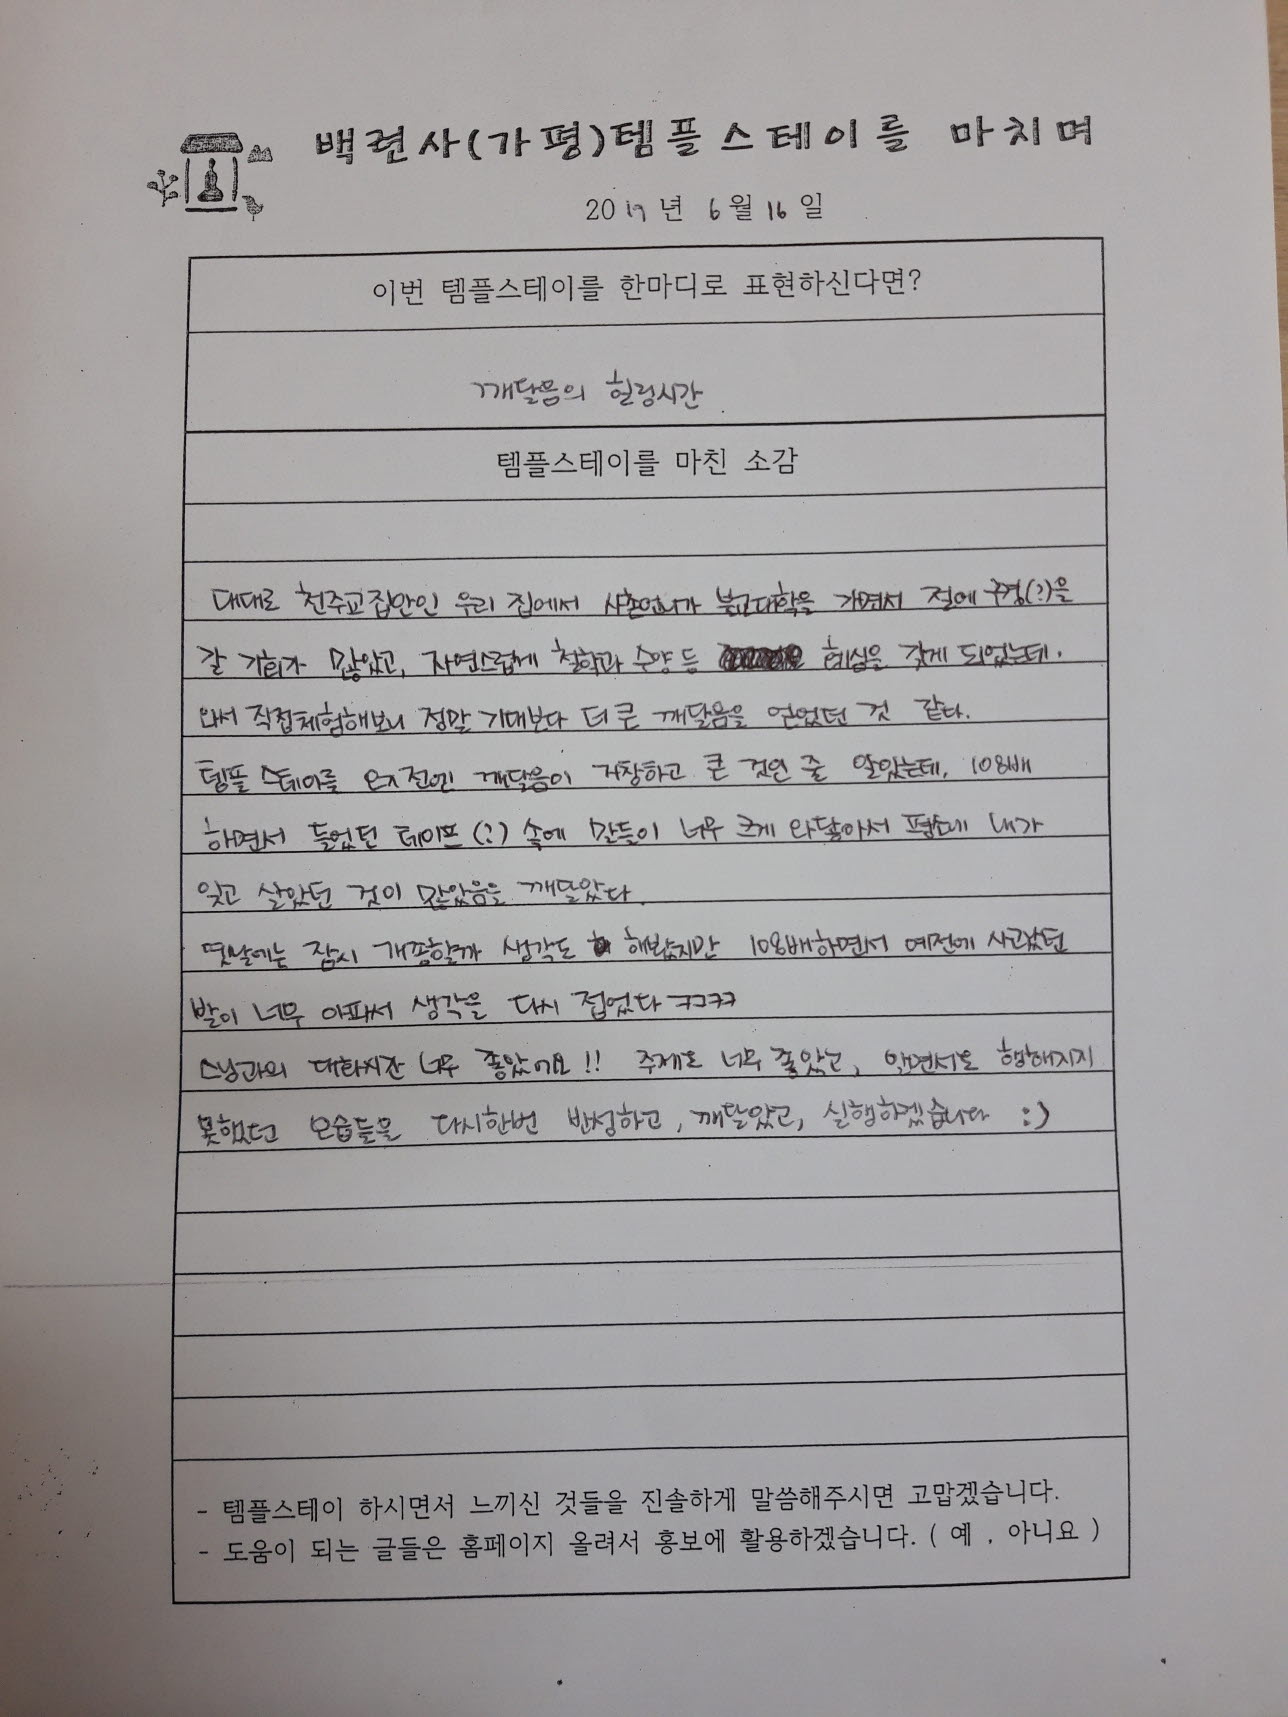 백련사(가평)템플스테이를 마치며
2019년 6월 16일
이번 템플스테이를 한마디로 표현하신다면?
깨달음의 힐링시간
템플스테이를 마친 소감
대대로 천주교집안인 우리 집에서 사촌언니가 불교대학을 가면서 절에 구경(?)을
갈 기회가 많았고, 자연스럽게 철학과 수양 등 혜심을 갖게 되었는데.
와서 직접체험해보니 정말 기대보다 더 큰 깨달음을 얻었던 것 같다.
템플 스테이를 오기전엔 깨달음이 거창하고 큰 것인 줄 알았는데, 108배
하면서 들었던 테이프(?) 속에 말들이 너무 크게 와닿아서 평소에 내가
잊고 살았던 것이 많았음을 깨달았다.
옛날에는 잠시 개종할까 생각도 해봤지만 108배하면서 예전에 사고났던
발이 너무 아파서 생각을 다시 접었다 ㅋㅋㅋㅋ
스님과의 대화시간 너무 좋았어요!! 주제도 너무 좋았고, 알면서도 행해지지
못했던 모습들을 다시한번 반성하고, 깨달았고, 실행하겠습니다 :)
- 템플스테이 하시면서 느끼신 것들을 진솔하게 말씀해주시면 고맙겠습니다.
- 도움이 되는 글들은 홈페이지 올려서 홍보에 활용하겠습니다. ( 예 , 아니요 )